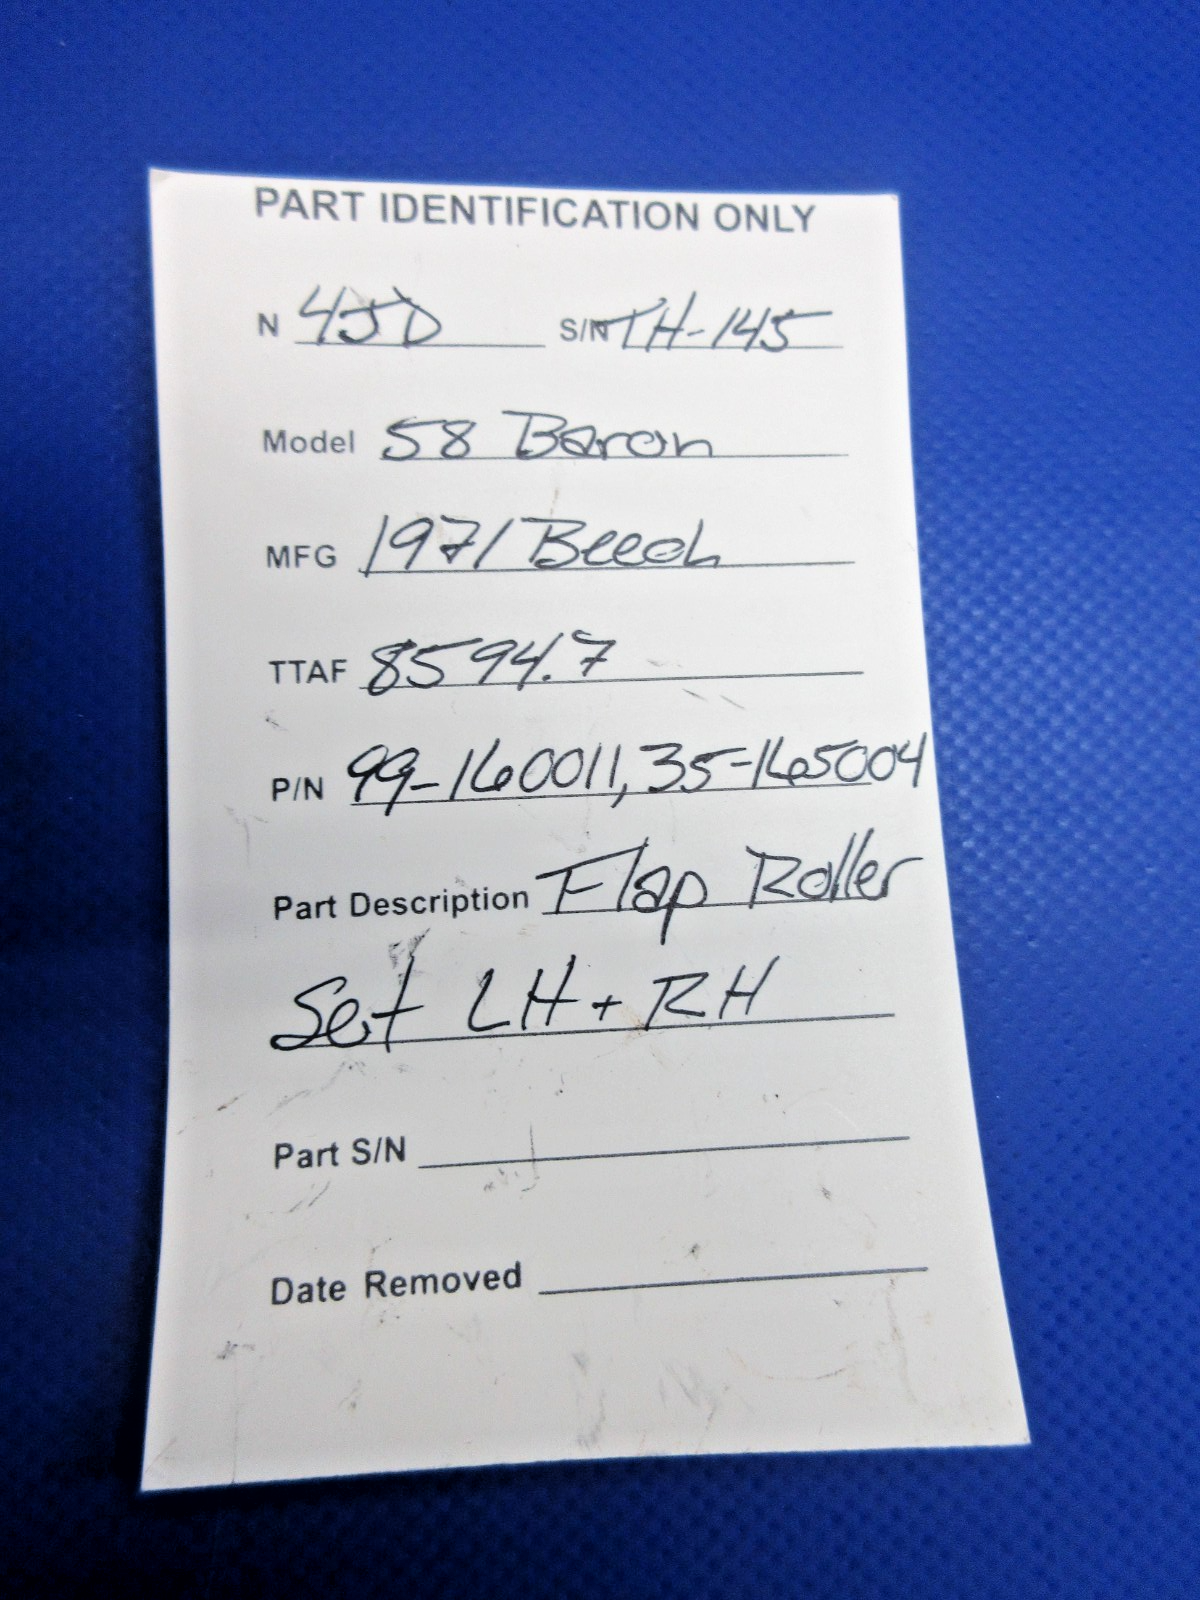 PART IDENTIFICATION ONLY
N 4JD S/N TH-145
Model 58 Baron
MFG 1971 Beech
TTAF 8594.7
P/N 99-160011, 35-165004
Part Description Flap Roller
Set LH + RH
Part S/N
Date Removed